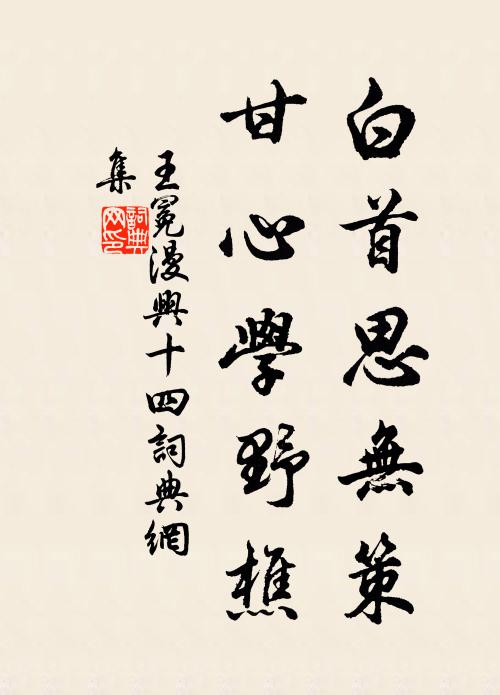 白首思無策
甘心學野樵
王冕漫興十四詞典網
集
詞典
网印